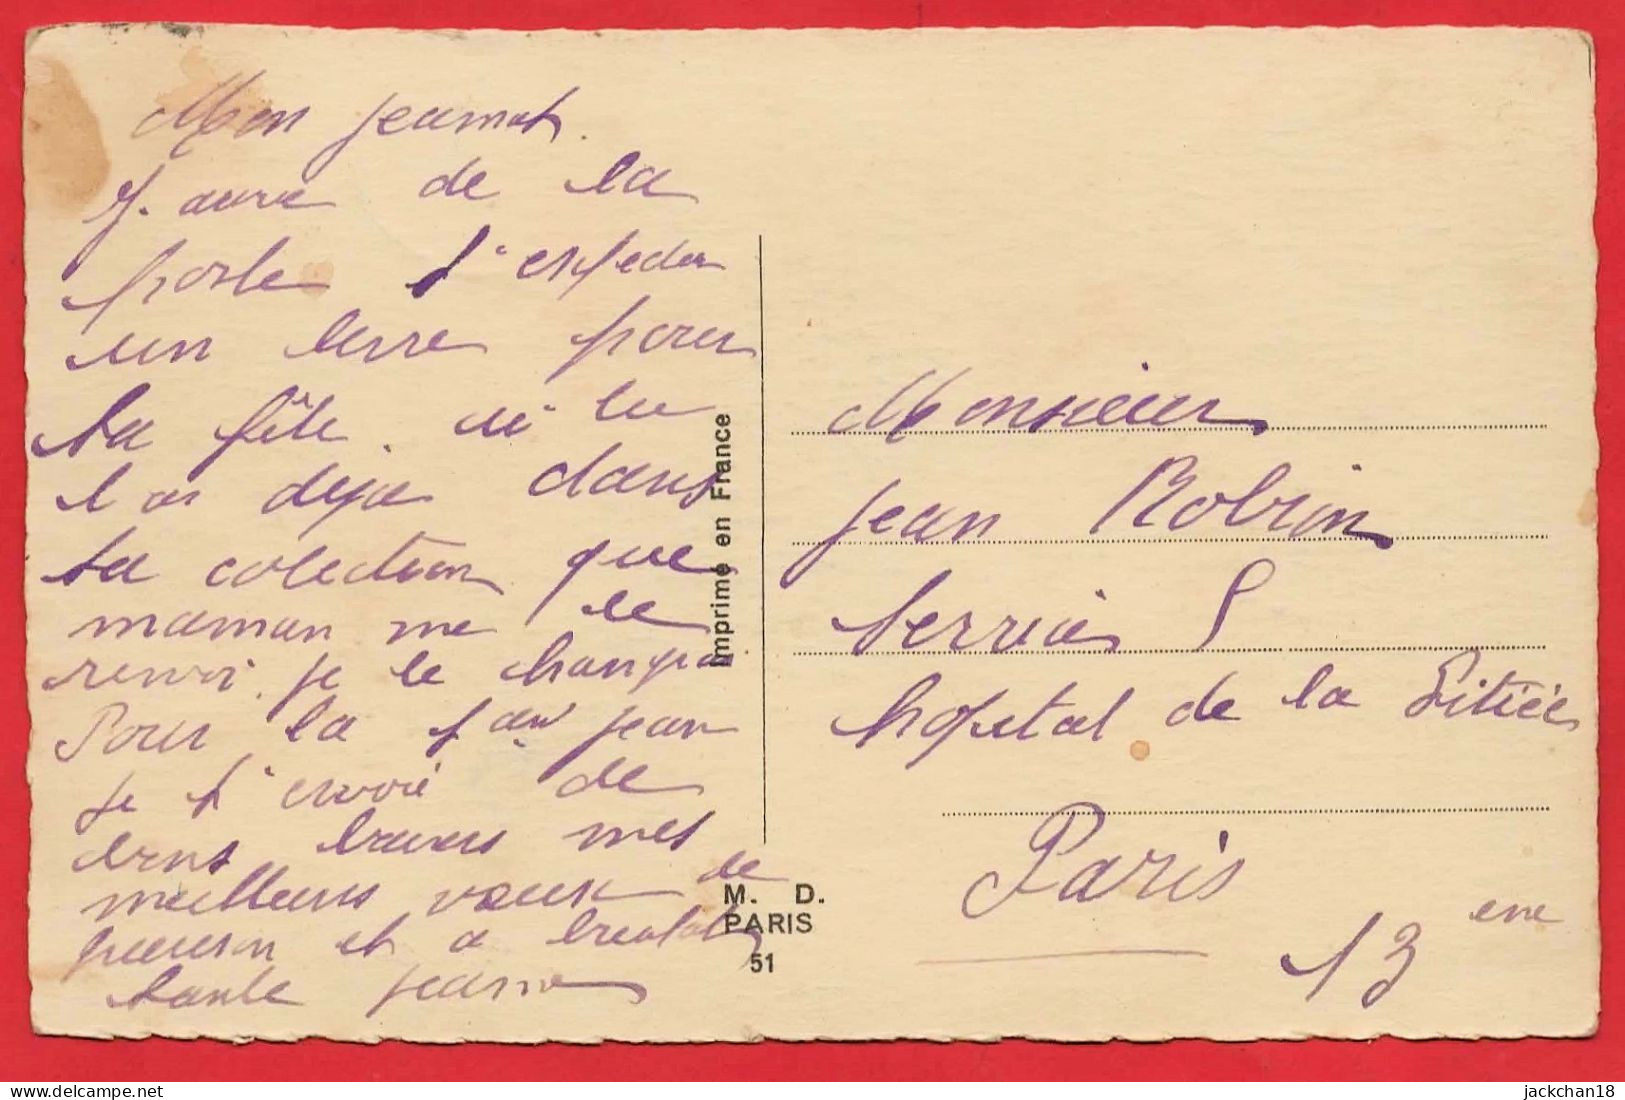 Mon jeannot.
J. aure de la
poste t'expedier
un livre pour
ta fête. si tu
l as deja dans
ta colection que
maman me le
renvoi. je le changerai
Pour la St jean
je t'envoie de
bons baisers mes
meilleurs voeux de
guerison et a bientot
tante jeanne
Imprimé en France
M. D.
PARIS
51
Monsieur
jean Robin
Serviæ S
hopital de la Pitiée
Paris
13 eme
jackchan18